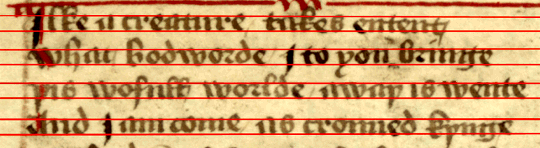 Ilke a creature takes entent
What bodworde I to you bringe
Þis wofull worlde away is wente
And I am come as crouned kynge